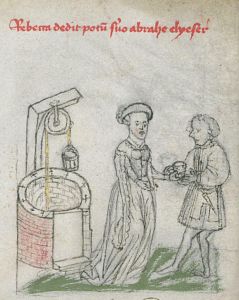 Rebecca dedit potū s̄uo abrahe elyeser